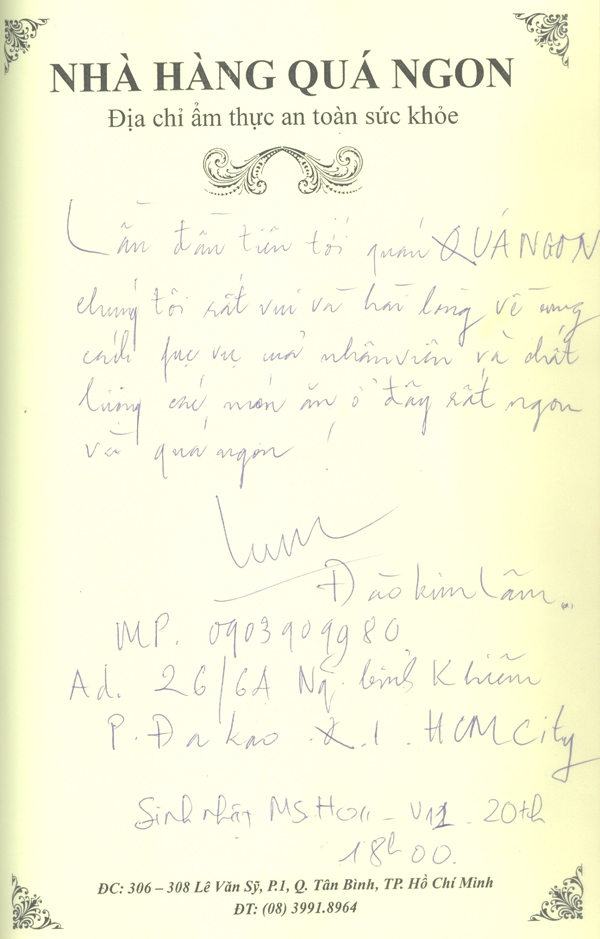 NHÀ HÀNG QUÁ NGON
Địa chỉ ẩm thực an toàn sức khỏe
Lần đầu tiên tới quán QUÁ NGON
chúng tôi rất vui và hài lòng về cung
cách phục vụ của nhân viên và chất
lượng các món ăn ở đây rất ngon
và quá ngon!
Đào Kim Lâm
MP. 0903909980
Ad. 26/6A Ng. bỉnh Khiêm
P. Đa kao Q.1. HCM City
Sinh nhật MS. 20th
18h00.
ĐC: 306 – 308 Lê Văn Sỹ, P.1, Q. Tân Bình, TP. Hồ Chí Minh
ĐT: (08) 3991.8964